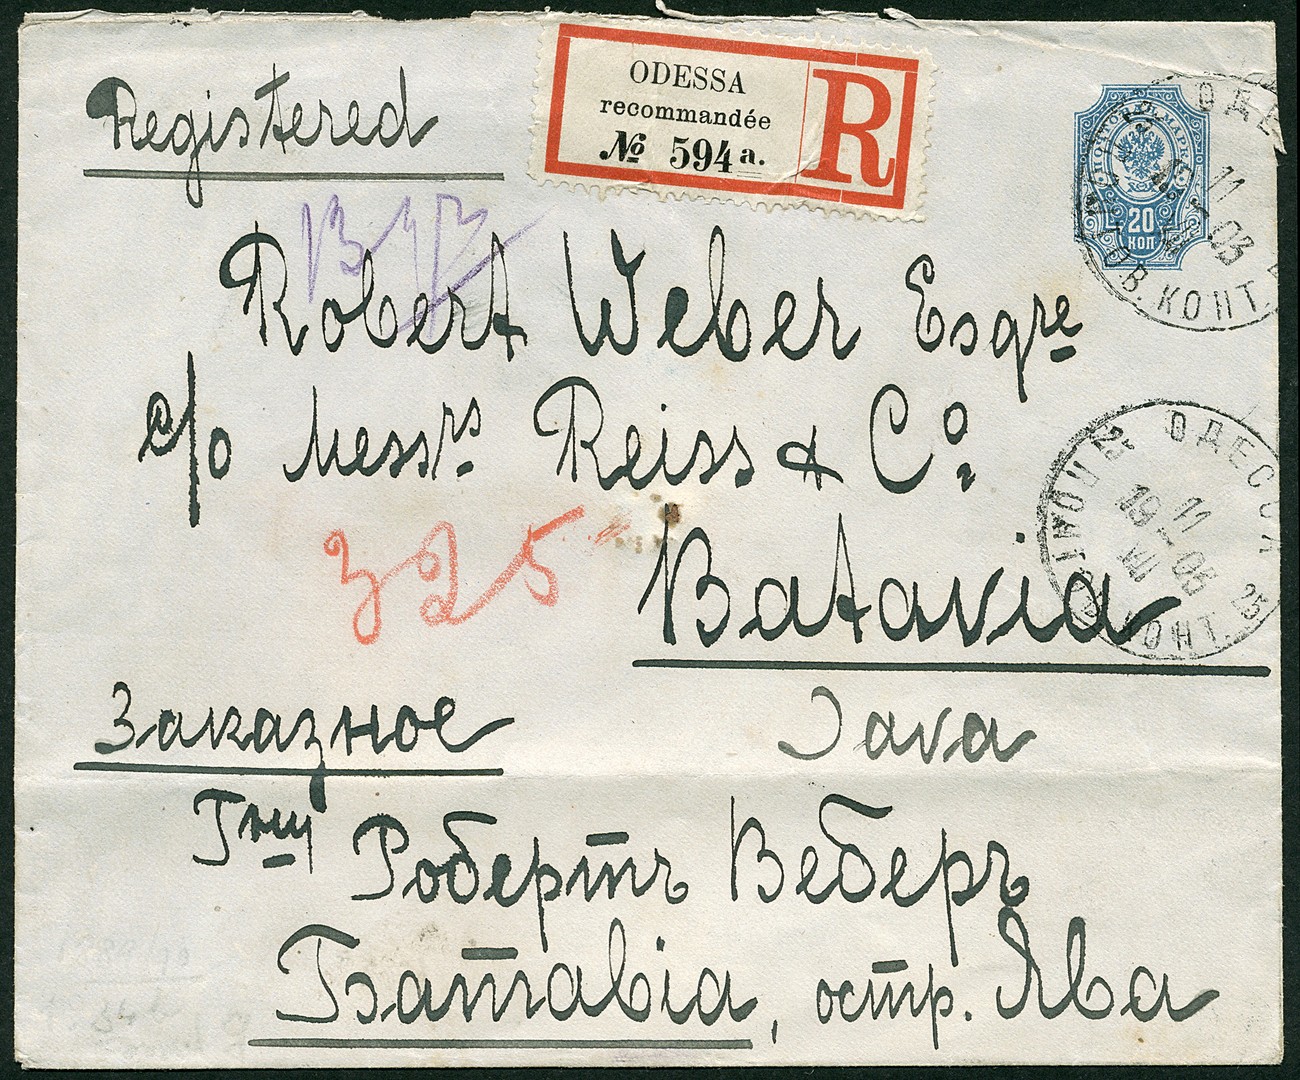 Registered
ODESSA
recommandée
№ 594 a.
R
ПОЧТОВАЯ МАРКА
20
КОП
11
03
ОВ. КОНТ.
Robert Weber Esqre
c/o Messrs Reiss & Co
ОДЕССА
19 11
I 03
КОНТ. 23
325
Batavia
Java
Заказное
Гну
Робертъ Веберъ
Батавія, остр. Ява